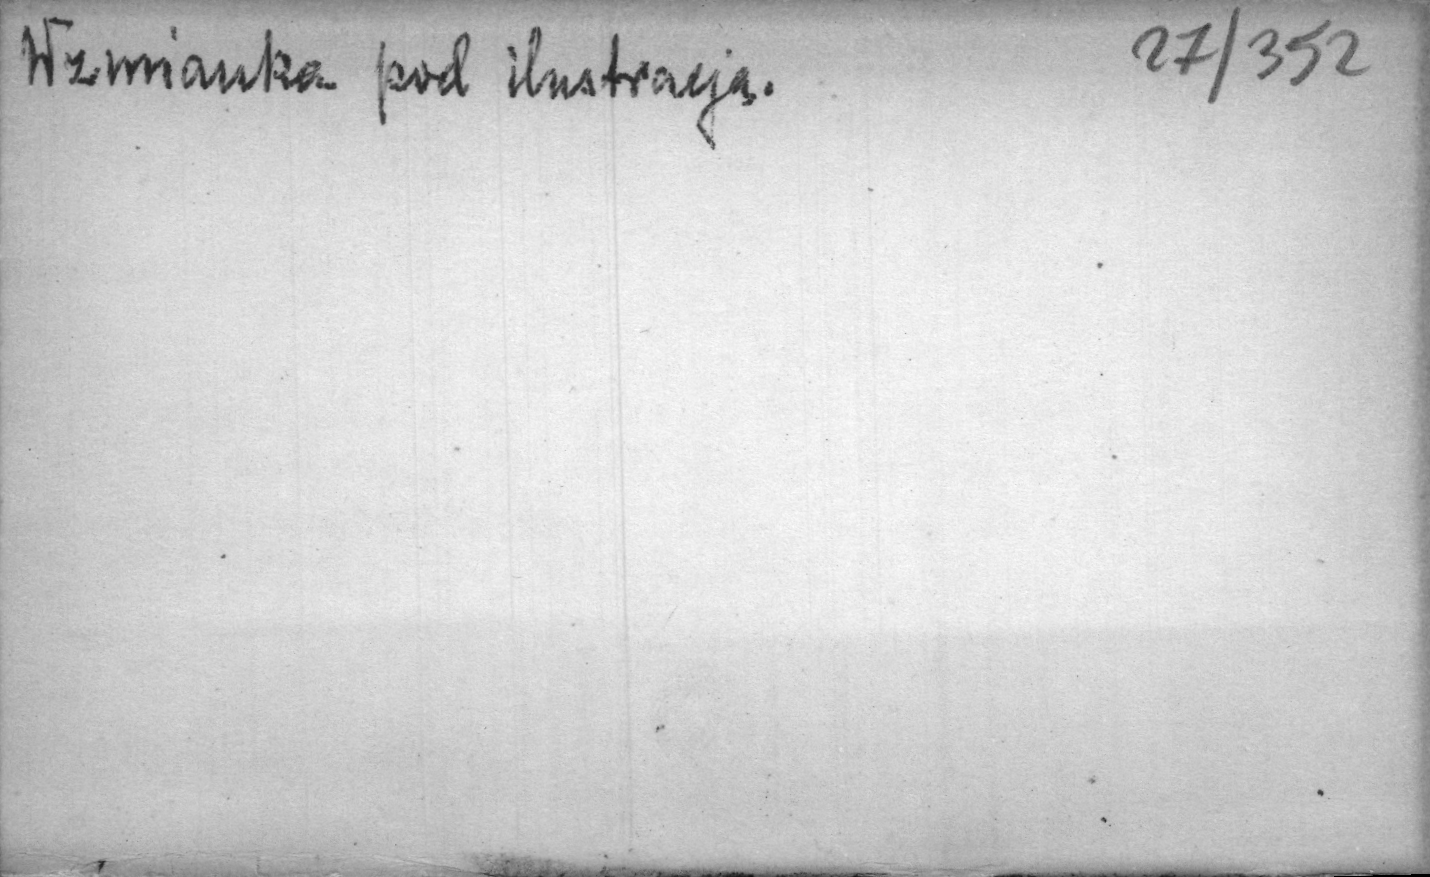 Wzmianka pod ilustracją.
27/352